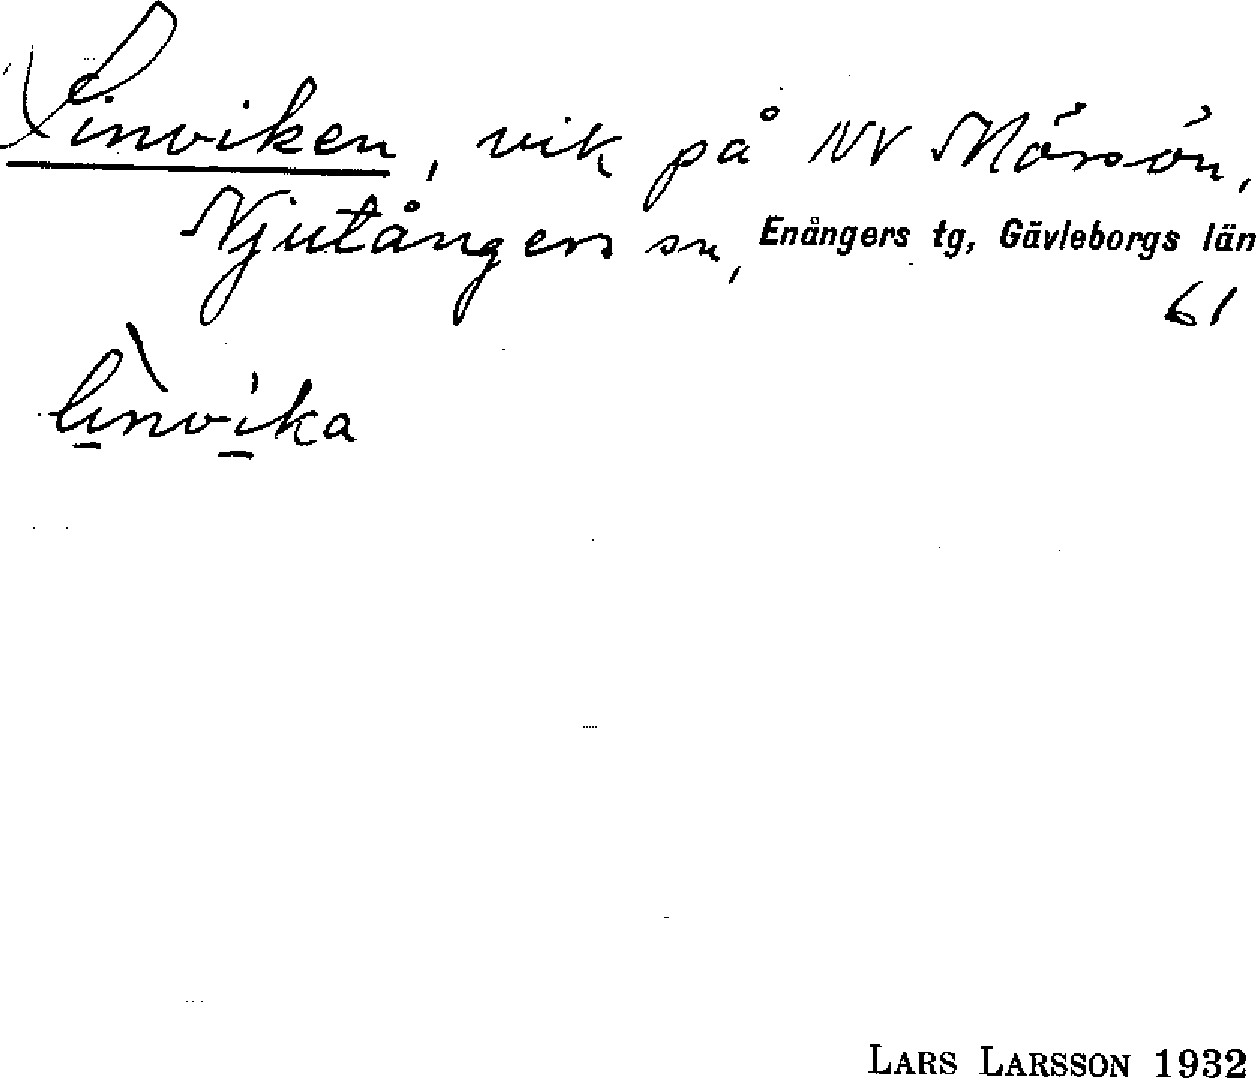 Linviken, vik på NV Mörsön,
Njutångers sn, Enångers tg, Gävleborgs län
61
lìnvika
LARS LARSSON 1932